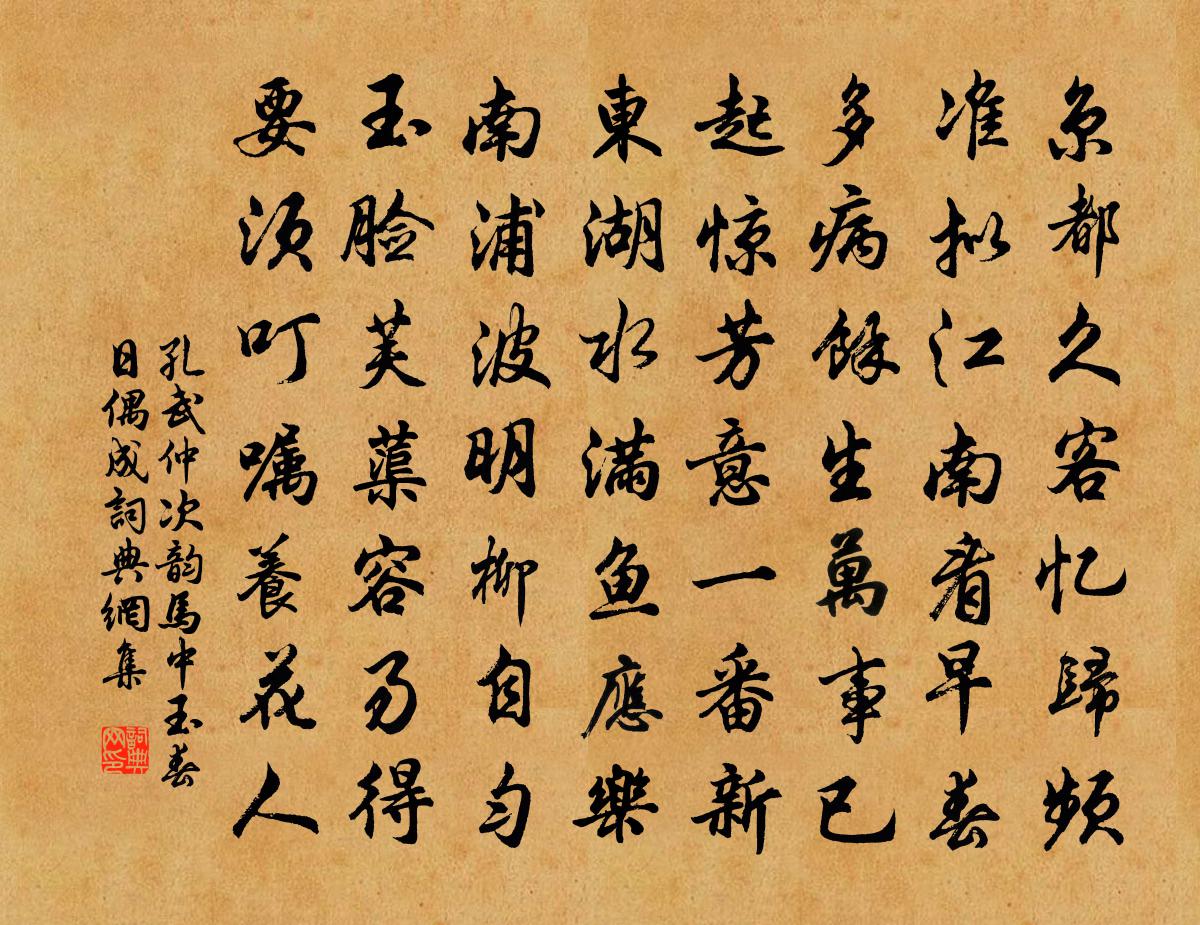 京都久客忆歸頻
准拟江南看早春
多病餘生萬事已
起惊芳意一番新
東湖水满鱼應樂
南浦波明柳自匀
玉脸芙蕖容易得
要须叮嘱養花人
孔武仲次韵馬中玉春
日偶成詞典網集
詞典
网印